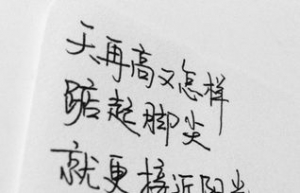 天再高又怎样
踮起脚尖
就更接近阳光